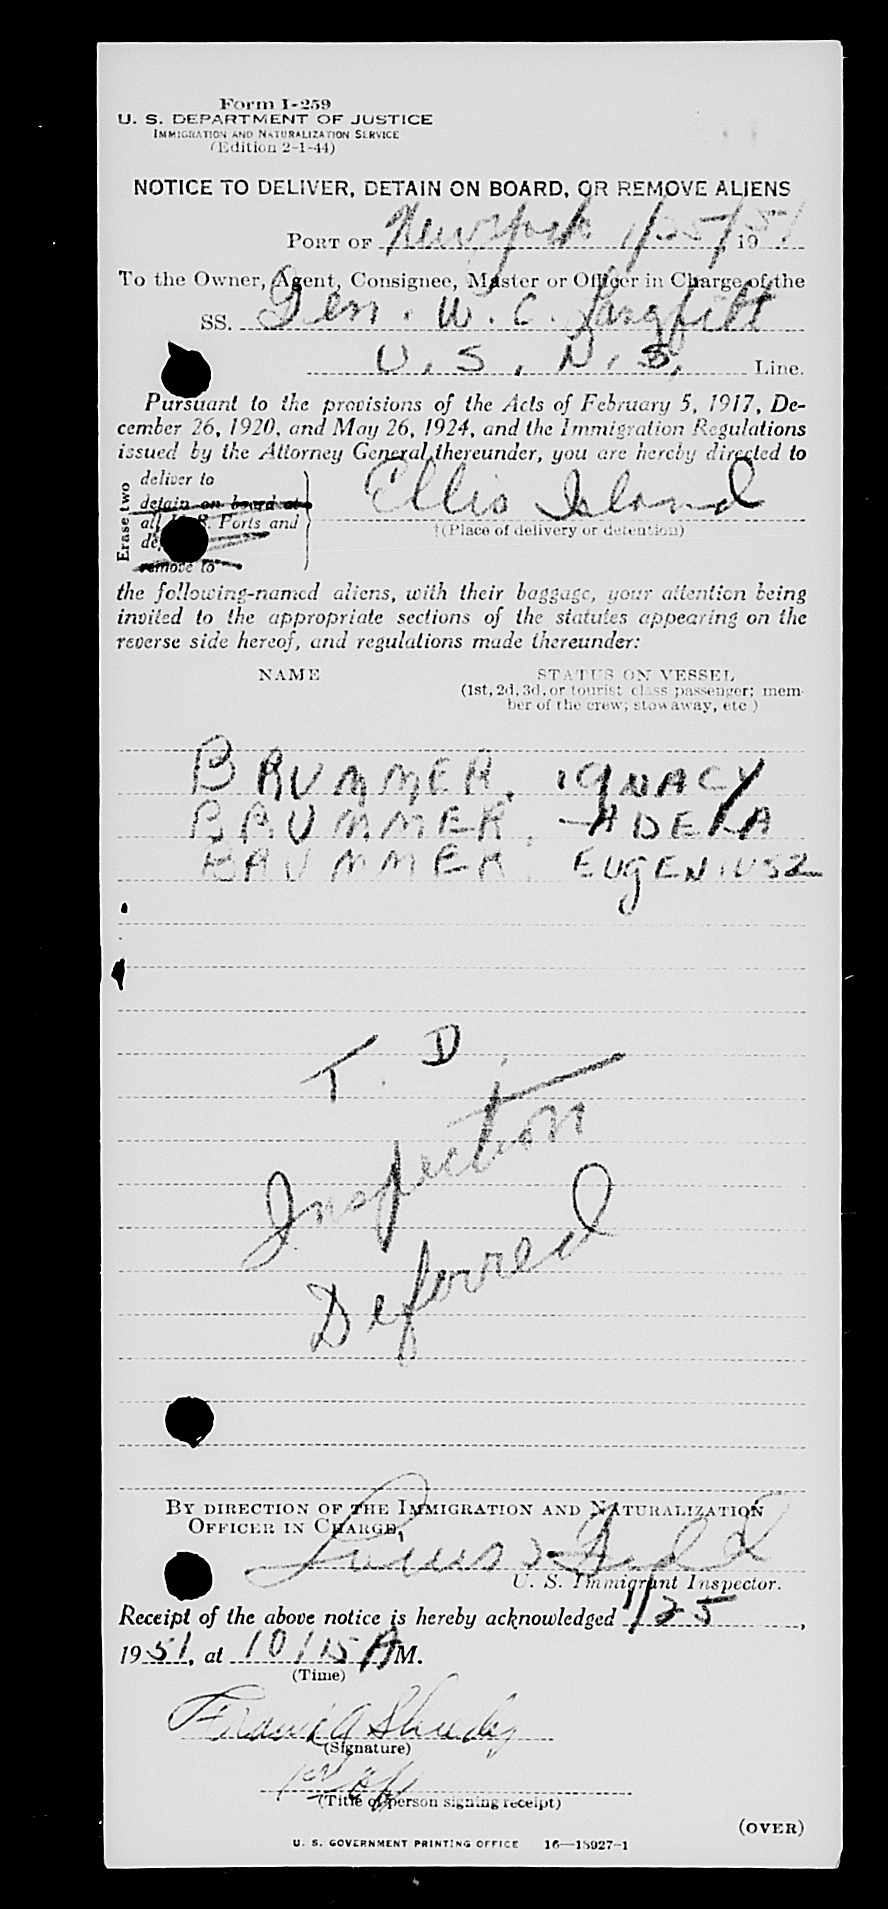 Form I-259
U. S. DEPARTMENT OF JUSTICE
IMMIGRATION AND NATURALIZATION SERVICE
(Edition 2-1-44)
NOTICE TO DELIVER, DETAIN ON BOARD, OR REMOVE ALIENS
PORT OF New York 1/25/, 1951
To the Owner, Agent, Consignee, Master or Officer in Charge of the
SS. Gen. W. C. Langfitt
U. S. N. S. Line.
Pursuant to the provisions of the Acts of February 5, 1917, De-
cember 26, 1920, and May 26, 1924, and the Immigration Regulations
issued by the Attorney General thereunder, you are hereby directed to
Erase two
deliver to
detain on board at
all Ports and
remove to
Ellis Island
†(Place of delivery or detention)
the following-named aliens, with their baggage, your attention being
invited to the appropriate sections of the statutes appearing on the
reverse side hereof, and regulations made thereunder:
NAME STATUS ON VESSEL
(1st, 2d, 3d, or tourist class passenger; mem-
ber of the crew; stowaway, etc.)
BRUMMER, IGNACY
BRUMMER, ADELA
BRUMMER, EUGENIUSZ
T. D
Inspection
Deferred
BY DIRECTION OF THE IMMIGRATION AND NATURALIZATION
OFFICER IN CHARGE,
U. S. Immigrant Inspector.
Receipt of the above notice is hereby acknowledged 1/25,
1951, at 10/15 A M.
(Time)
(Signature)
(Title of person signing receipt)
(OVER)
U. S. GOVERNMENT PRINTING OFFICE 16—18927-1